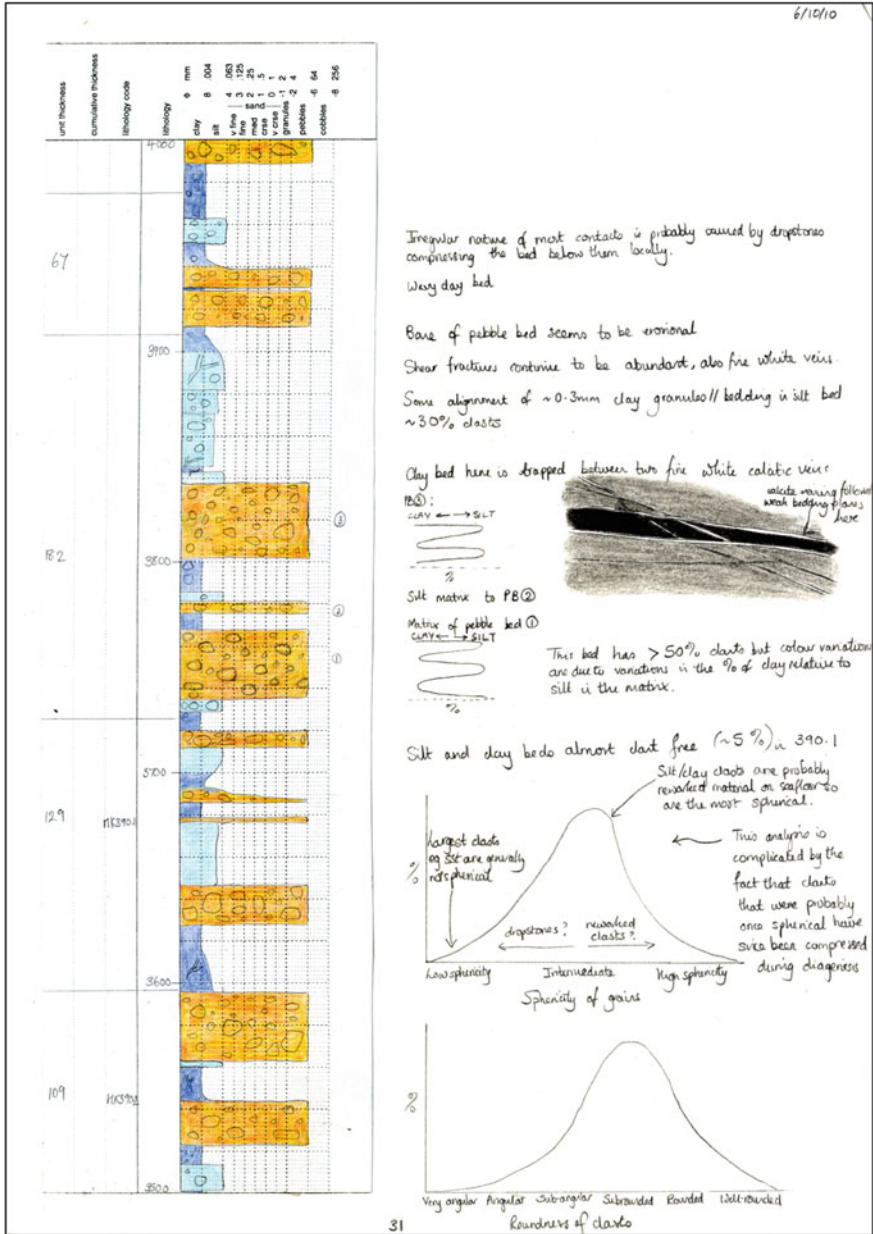 6/10/10
unit thickness
cumulative thickness
lithology code
lithology
ϕ mm
8 .004
4 .063
3 .125
2 .25
1 .5
0 1
-1 2
-2 4
-6 64
-8 256
clay
silt
v fine
fine
med
crse
v crse
sand
granules
pebbles
cobbles
4000
67
3900
182
3800
3
2
1
129
3700
3600
109
3500
Irregular nature of most contacts is probably caused by dropstones
compressing the bed below them locally.
Wavy clay bed
Base of pebble bed seems to be erosional
Shear fractures continue to be abundant, also fine white veins.
Some alignment of ~0.3mm clay granules // bedding in silt bed
~30% clasts
Clay bed here is trapped between two fine white calcitic veins
calcite veining follows
weak bedding planes
here
PB③:
CLAY ⟷ SILT
%
Silt matrix to PB②
Matrix of pebble bed ①
CLAY ⟷ SILT
%
This bed has > 50% clasts but colour variations
are due to variations in the % of clay relative to
silt in the matrix.
Silt and clay beds almost clast free (~5%) in 390.1
Silt/clay clasts are probably
reworked material on seafloor so
are the most spherical.
Largest clasts
eg sst are generally
not spherical
%
dropstones?
reworked
clasts?
This analysis is
complicated by the
fact that clasts
that were probably
once spherical have
since been compressed
during diagenesis
Low sphericity Intermediate High sphericity
Sphericity of grains
%
Very angular Angular Sub-angular Subrounded Rounded Well-rounded
Roundness of clasts
31